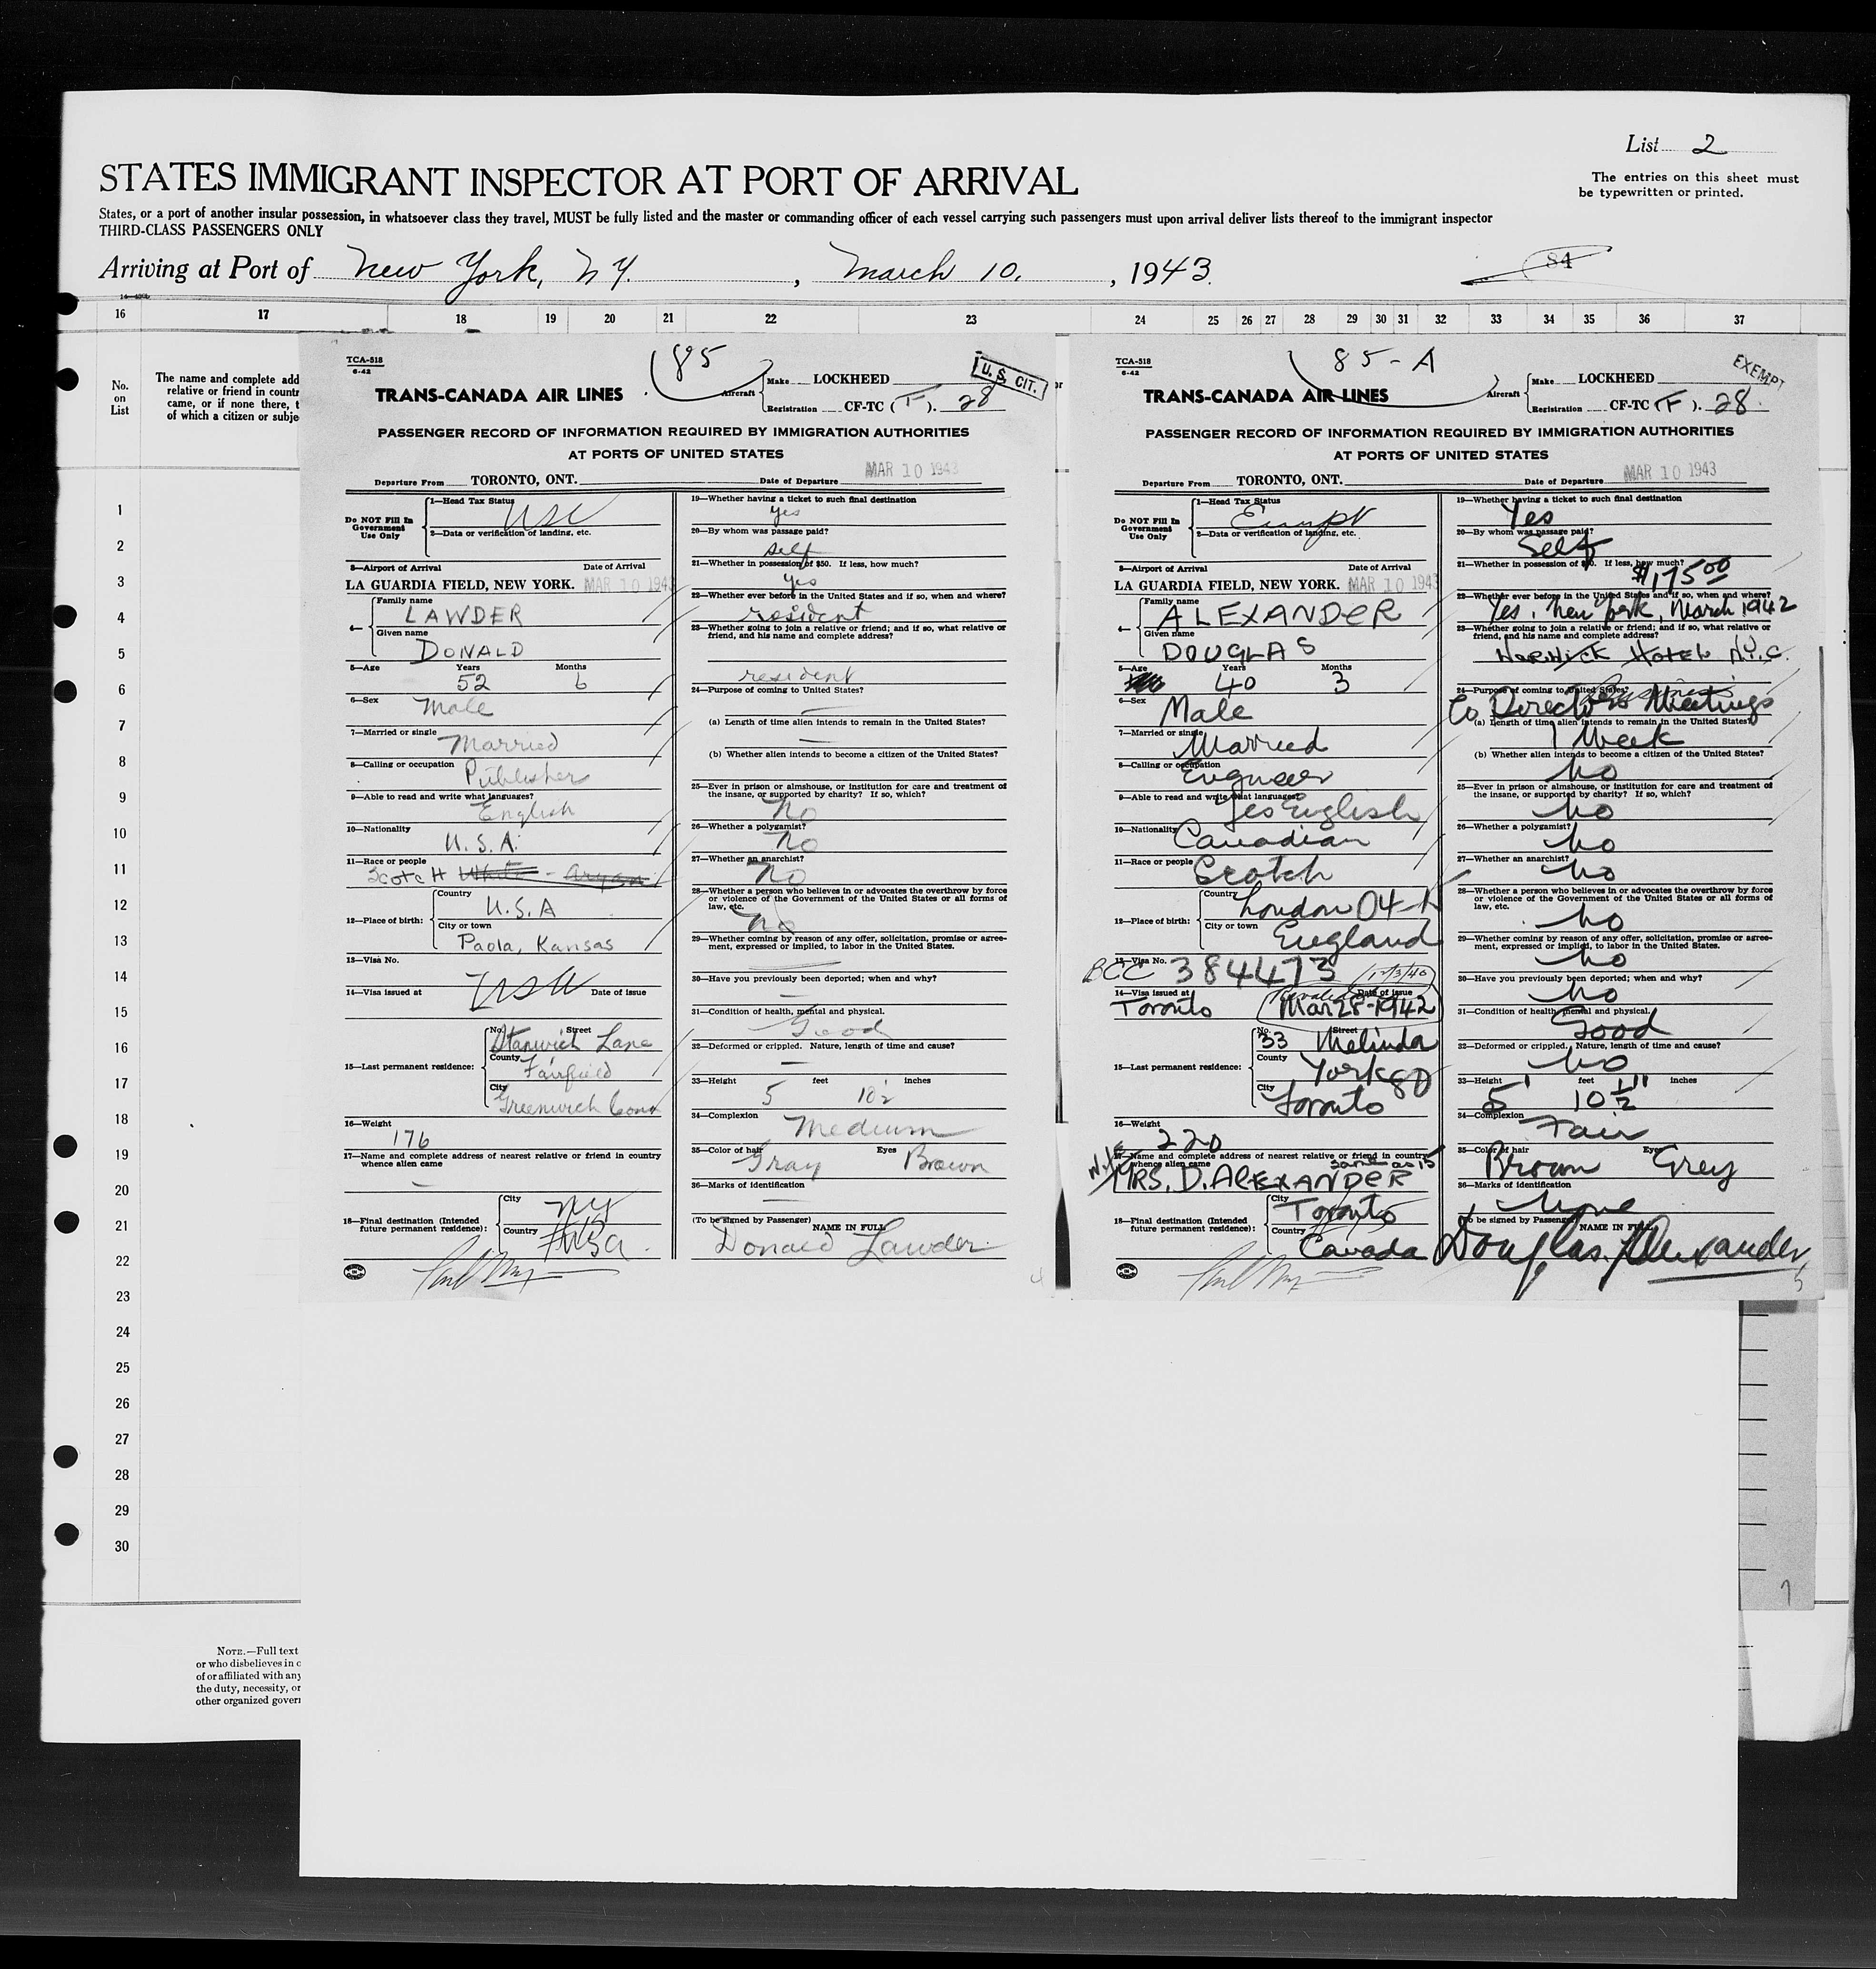 List 2
The entries on this sheet must
be typewritten or printed.
STATES IMMIGRANT INSPECTOR AT PORT OF ARRIVAL
States, or a port of another insular possession, in whatsoever class they travel, MUST be fully listed and the master or commanding officer of each vessel carrying such passengers must upon arrival deliver lists thereof to the immigrant inspector
THIRD-CLASS PASSENGERS ONLY
Arriving at Port of New York, N.Y. , March 10, , 1943.
84
16 17 18 19 20 21 22 23 24 25 26 27 28 29 30 31 32 33 34 35 36 37
No.
on
List
The name and complete add
relative or friend in countr
came, or if none there, t
of which a citizen or subje
1
2
3
4
5
6
7
8
9
10
11
12
13
14
15
16
17
18
19
20
21
22
23
24
25
26
27
28
29
30
NOTE.—Full text
or who disbelieves in o
of or affiliated with any
the duty, necessity, or
other organized govern
TCA-518
6-42
85
U.S. CIT.
TRANS-CANADA AIR LINES
Aircraft
Make LOCKHEED
Registration CF-TC (F). 28
PASSENGER RECORD OF INFORMATION REQUIRED BY IMMIGRATION AUTHORITIES
AT PORTS OF UNITED STATES
Departure From TORONTO, ONT. Date of Departure MAR 10 1943
Do NOT Fill In
Government
Use Only
1—Head Tax Status
USC
2—Data or verification of landing, etc.
3—Airport of Arrival Date of Arrival
LA GUARDIA FIELD, NEW YORK. MAR 10 1943
4—
Family name
LAWDER
Given name
DONALD
5—Age Years Months
52 6
6—Sex
Male
7—Married or single
Married
8—Calling or occupation
Publisher
9—Able to read and write what languages?
English
10—Nationality
U.S.A.
11—Race or people
Scotch White - Aryan
12—Place of birth:
Country
U.S.A
City or town
Paola, Kansas
13—Visa No.
14—Visa issued at Date of issue
15—Last permanent residence:
No. Street
Stanwich Lane
County
Fairfield
City
Greenwich Conn
16—Weight
176
17—Name and complete address of nearest relative or friend in country
whence alien came
—
18—Final destination (Intended
future permanent residence):
City
NY
Country
USA
19—Whether having a ticket to such final destination
yes
20—By whom was passage paid?
self
21—Whether in possession of $50. If less, how much?
yes
22—Whether ever before in the United States and if so, when and where?
resident
23—Whether going to join a relative or friend; and if so, what relative or
friend, and his name and complete address?
resident
24—Purpose of coming to United States?
—
(a) Length of time alien intends to remain in the United States?
—
(b) Whether alien intends to become a citizen of the United States?
25—Ever in prison or almshouse, or institution for care and treatment of
the insane, or supported by charity? If so, which?
No
26—Whether a polygamist?
No
27—Whether an anarchist?
No
28—Whether a person who believes in or advocates the overthrow by force
or violence of the Government of the United States or all forms of
law, etc.
No
29—Whether coming by reason of any offer, solicitation, promise or agree-
ment, expressed or implied, to labor in the United States.
—
30—Have you previously been deported; when and why?
—
31—Condition of health, mental and physical.
Good
32—Deformed or crippled. Nature, length of time and cause?
—
33—Height feet inches
5 10½
34—Complexion
Medium
35—Color of hair Eyes
Gray Brown
36—Marks of identification
—
(To be signed by Passenger) NAME IN FULL
Donald Lawder
4
TCA-518
6-42
85-A
EXEMPT
TRANS-CANADA AIR LINES
Aircraft
Make LOCKHEED
Registration CF-TC (F). 28
PASSENGER RECORD OF INFORMATION REQUIRED BY IMMIGRATION AUTHORITIES
AT PORTS OF UNITED STATES
Departure From TORONTO, ONT. Date of Departure MAR 10 1943
Do NOT Fill In
Government
Use Only
1—Head Tax Status
Exempt
2—Data or verification of landing, etc.
3—Airport of Arrival Date of Arrival
LA GUARDIA FIELD, NEW YORK. MAR 10 1943
4—
Family name
ALEXANDER
Given name
DOUGLAS
5—Age Years Months
40 3
6—Sex
Male
7—Married or single
Married
8—Calling or occupation
Engineer
9—Able to read and write what languages?
Yes English
10—Nationality
Canadian
11—Race or people
Scotch
12—Place of birth:
Country
London 04-
City or town
England
13—Visa No.
BCC 384473 12/3/40
14—Visa issued at Date of issue
Toronto Mar 28-1942
15—Last permanent residence:
No. Street
33 Melinda
County
York 80
City
Toronto
16—Weight
220
17—Name and complete address of nearest relative or friend in country
whence alien came same as 15
Wife MRS. D. ALEXANDER
18—Final destination (Intended
future permanent residence):
City
Toronto
Country
Canada
19—Whether having a ticket to such final destination
Yes
20—By whom was passage paid?
Self
21—Whether in possession of $50. If less, how much?
$175.00
22—Whether ever before in the United States and if so, when and where?
Yes, New York, March 1942
23—Whether going to join a relative or friend; and if so, what relative or
friend, and his name and complete address?
WARWICK HOTEL N.Y.C.
24—Purpose of coming to United States? Business
Co Directors Meetings
(a) Length of time alien intends to remain in the United States?
1 Week
(b) Whether alien intends to become a citizen of the United States?
No
25—Ever in prison or almshouse, or institution for care and treatment of
the insane, or supported by charity? If so, which?
No
26—Whether a polygamist?
No
27—Whether an anarchist?
No
28—Whether a person who believes in or advocates the overthrow by force
or violence of the Government of the United States or all forms of
law, etc.
No
29—Whether coming by reason of any offer, solicitation, promise or agree-
ment, expressed or implied, to labor in the United States.
No
30—Have you previously been deported; when and why?
No
31—Condition of health, mental and physical.
Good
32—Deformed or crippled. Nature, length of time and cause?
No
33—Height feet inches
5' 10½"
34—Complexion
Fair
35—Color of hair Eyes
Brown Grey
36—Marks of identification
None
(To be signed by Passenger) NAME IN FULL
Douglas Alexander
5
7